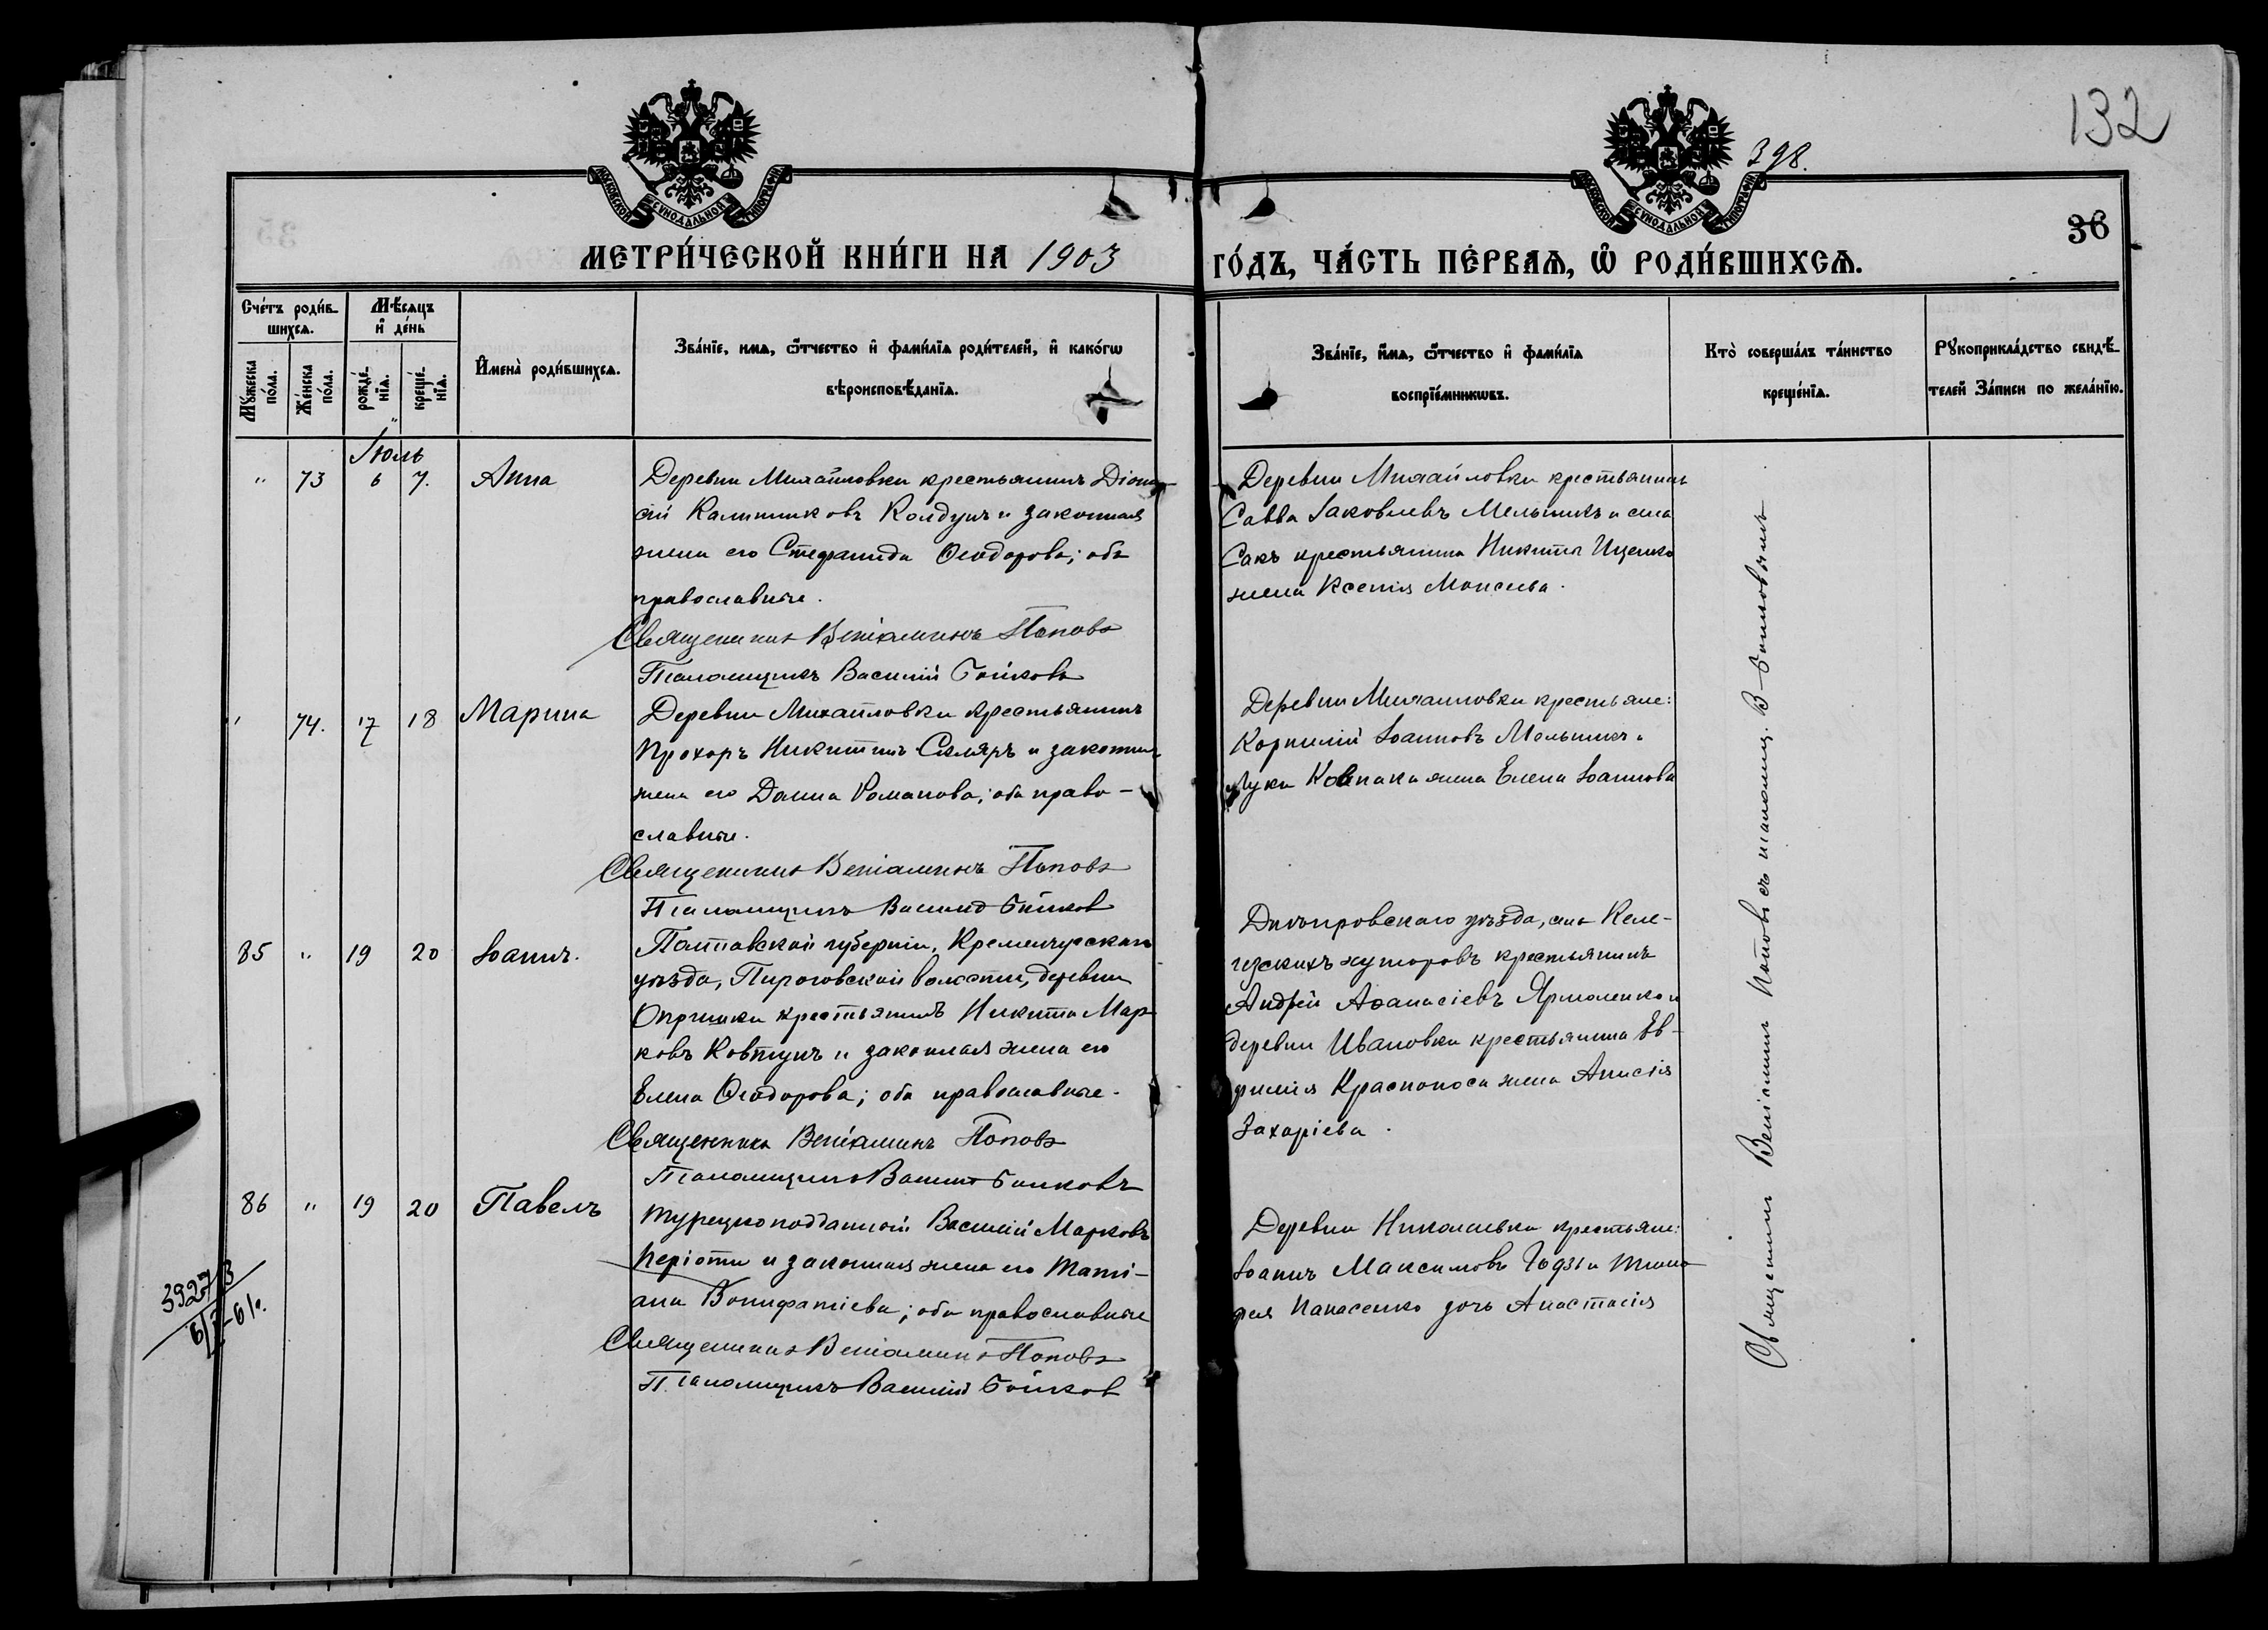 132
398.
36
МОСКОВСКОЙ СѴНОДАЛЬНОЙ ТИПОГРАФІИ
МОСКОВСКОЙ СѴНОДАЛЬНОЙ ТИПОГРАФІИ
МЕТРИ́ЧЕСКОЙ КНИ́ГИ НА 1903
ГО́ДЪ, ЧА́СТЬ ПЕ́РВАѦ, Ѡ҆ РОДИ́ВШИХСѦ.
Сче́тъ роди́в-
шихсѧ.
Мѣ́сѧцъ
и҆ де́нь
Мꙋ́жеска
по́ла.
Же́нска
по́ла.
рожде́-
нїѧ.
креще́-
нїѧ.
И҆мена̀ роди́вшихсѧ.
Зва́нїе, и҆мѧ, ѻ҆́тчество и҆ фами́лїѧ роди́телей, и҆ како́гѡ
вѣроисповѣ́данїѧ.
Зва́нїе, и҆́мѧ, ѻ҆́тчество и҆ фами́лїѧ
воспрїе́мникѡвъ.
Кто̀ соверша́лъ та́инство
креще́нїѧ.
Рꙋкоприкла́дство свидѣ́-
телей За́писи по жела́нїю.
Іюль
" 73 6 7. Анна
Деревни Михайловки крестьянинъ Діони-
сій Калинниковъ Колдунъ и законная
жена его Стефанида Ѳеодорова; оба
православные.
Священникъ Веніаминъ Поповъ
Псаломщикъ Василій Бойковъ
Деревни Михайловки крестьянинъ
Савва Іаковлевъ Мельникъ и села
Сакъ крестьянина Никиты Ищенко
жена Ксенія Моисеева.
" 74. 17 18 Марина
Деревни Михайловки крестьянинъ
Прохоръ Никитинъ Скляръ и законная
жена его Домна Романова; оба право-
славные.
Священникъ Веніаминъ Поповъ
Псаломщикъ Василій Бойков
Деревни Михаиловки крестьяне:
Корнилій Іоанновъ Мельникъ и
Луки Ковпака жена Елена Іоаннова
85 " 19 20 Іоаннъ.
Полтавской губерніи, Кременчугскаго
уѣзда, Пироговской волости, деревни
Опришки крестьянинъ Никита Мар-
ковъ Ковтунъ и законная жена его
Елена Ѳеодорова; оба православные.
Священникъ Веніаминъ Поповъ
Псаломщикъ Василій Бойковъ
Днѣпровскаго уѣзда, Келе-
гезскихъ хуторовъ крестьянинъ
Андрей Аѳанасіевъ Ярмоленко и
деревни Ивановки крестьянина Ев-
фимія Красноноса жена Анисія
Захаріева.
86 " 19 20 Павелъ
Турецкоподданный Василій Марковъ
Періоти и законная жена его Таті-
ана Вонифатіева; оба православные
Священникъ Веніаминъ Поповъ
Псаломщикъ Василій Бойков
Деревни Николаевки крестьяне:
Іоаннъ Максимовъ Годзь и Тимо-
фея Панасенко дочь Анастасія
Священникъ Веніаминъ Поповъ съ псаломщ. В. Бойковымъ
3927/3